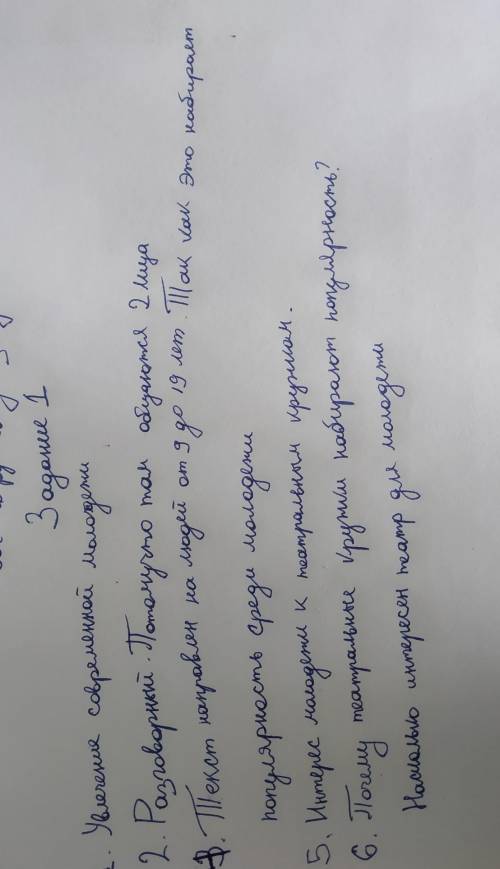 Задание 1
1. Увлечение современной молодежи
2. Разговорный. Потомучто там общаются 2 лица
3. Текст направлен на людей от 9 до 19 лет. Так как это набирает
популярность среди молодежи
5. Интерес молодежи к театральным кружкам.
6. Почему театральные кружки набирают популярность?
Насколько интересен театр для молодежи